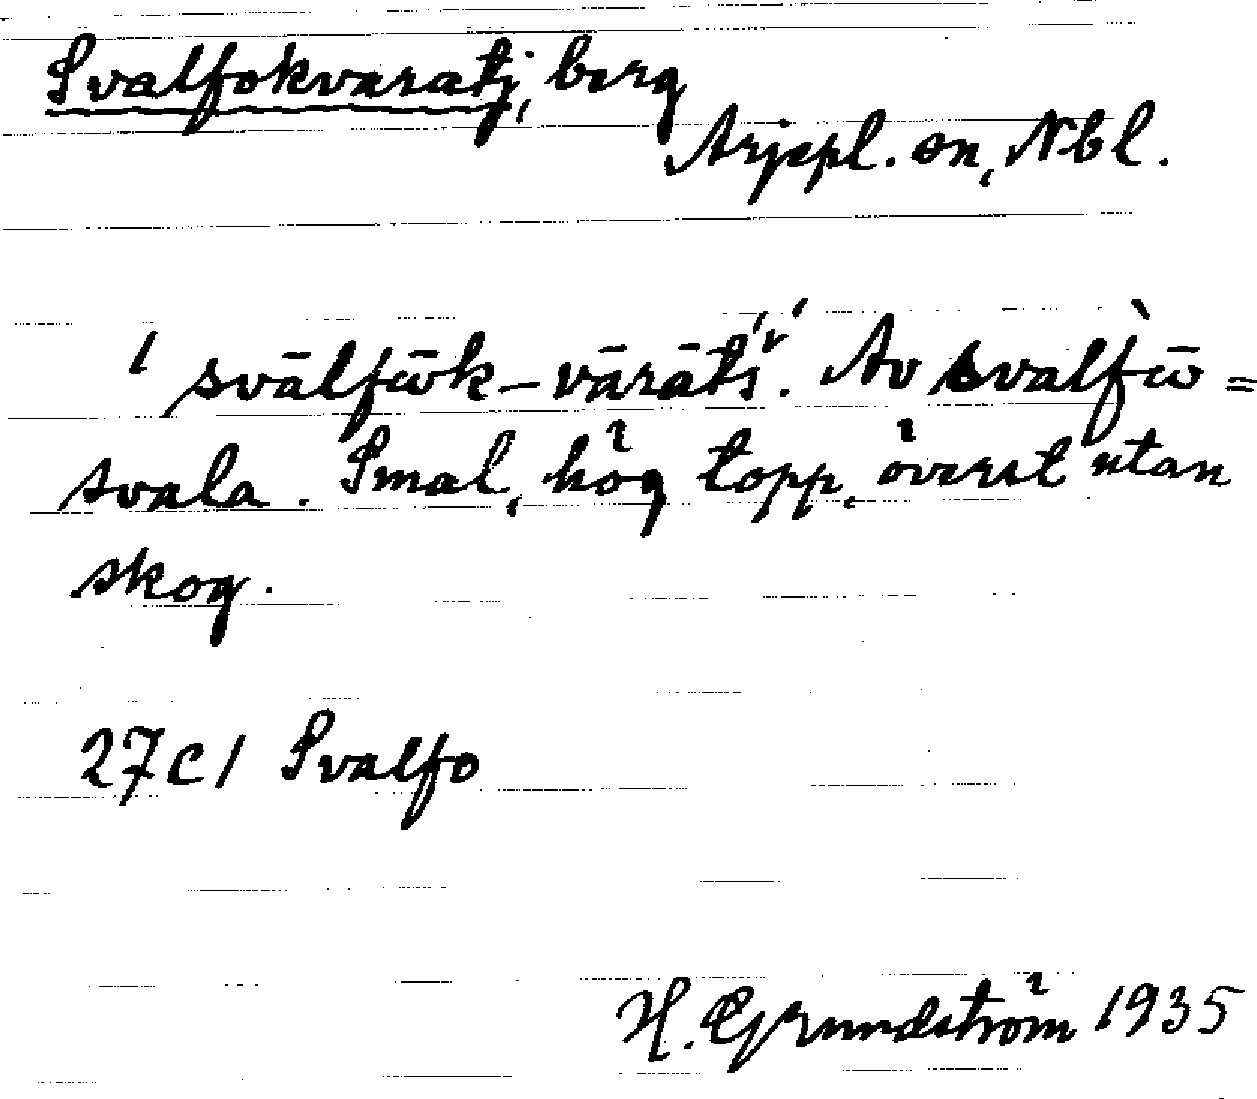 Svalfokvaratj, berg
Arjepl. sn, Nbl.
ˈsvālfω̄k-vārāt́š́. Av svalfω̄̀ =
svala. Smal, hög topp, överst utan
skog.
27C1 Svalfo
H. Grundström 1935